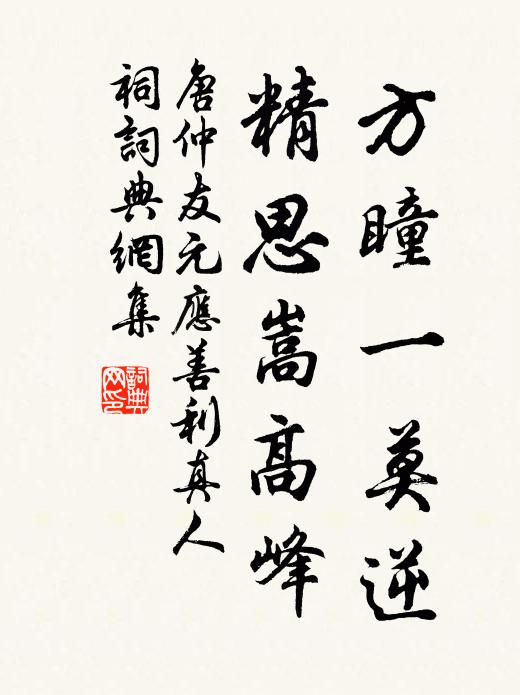 方瞳一莫逆
精思嵩高峰
唐仲友元應善利真人
祠詞典網集
詞典
网印